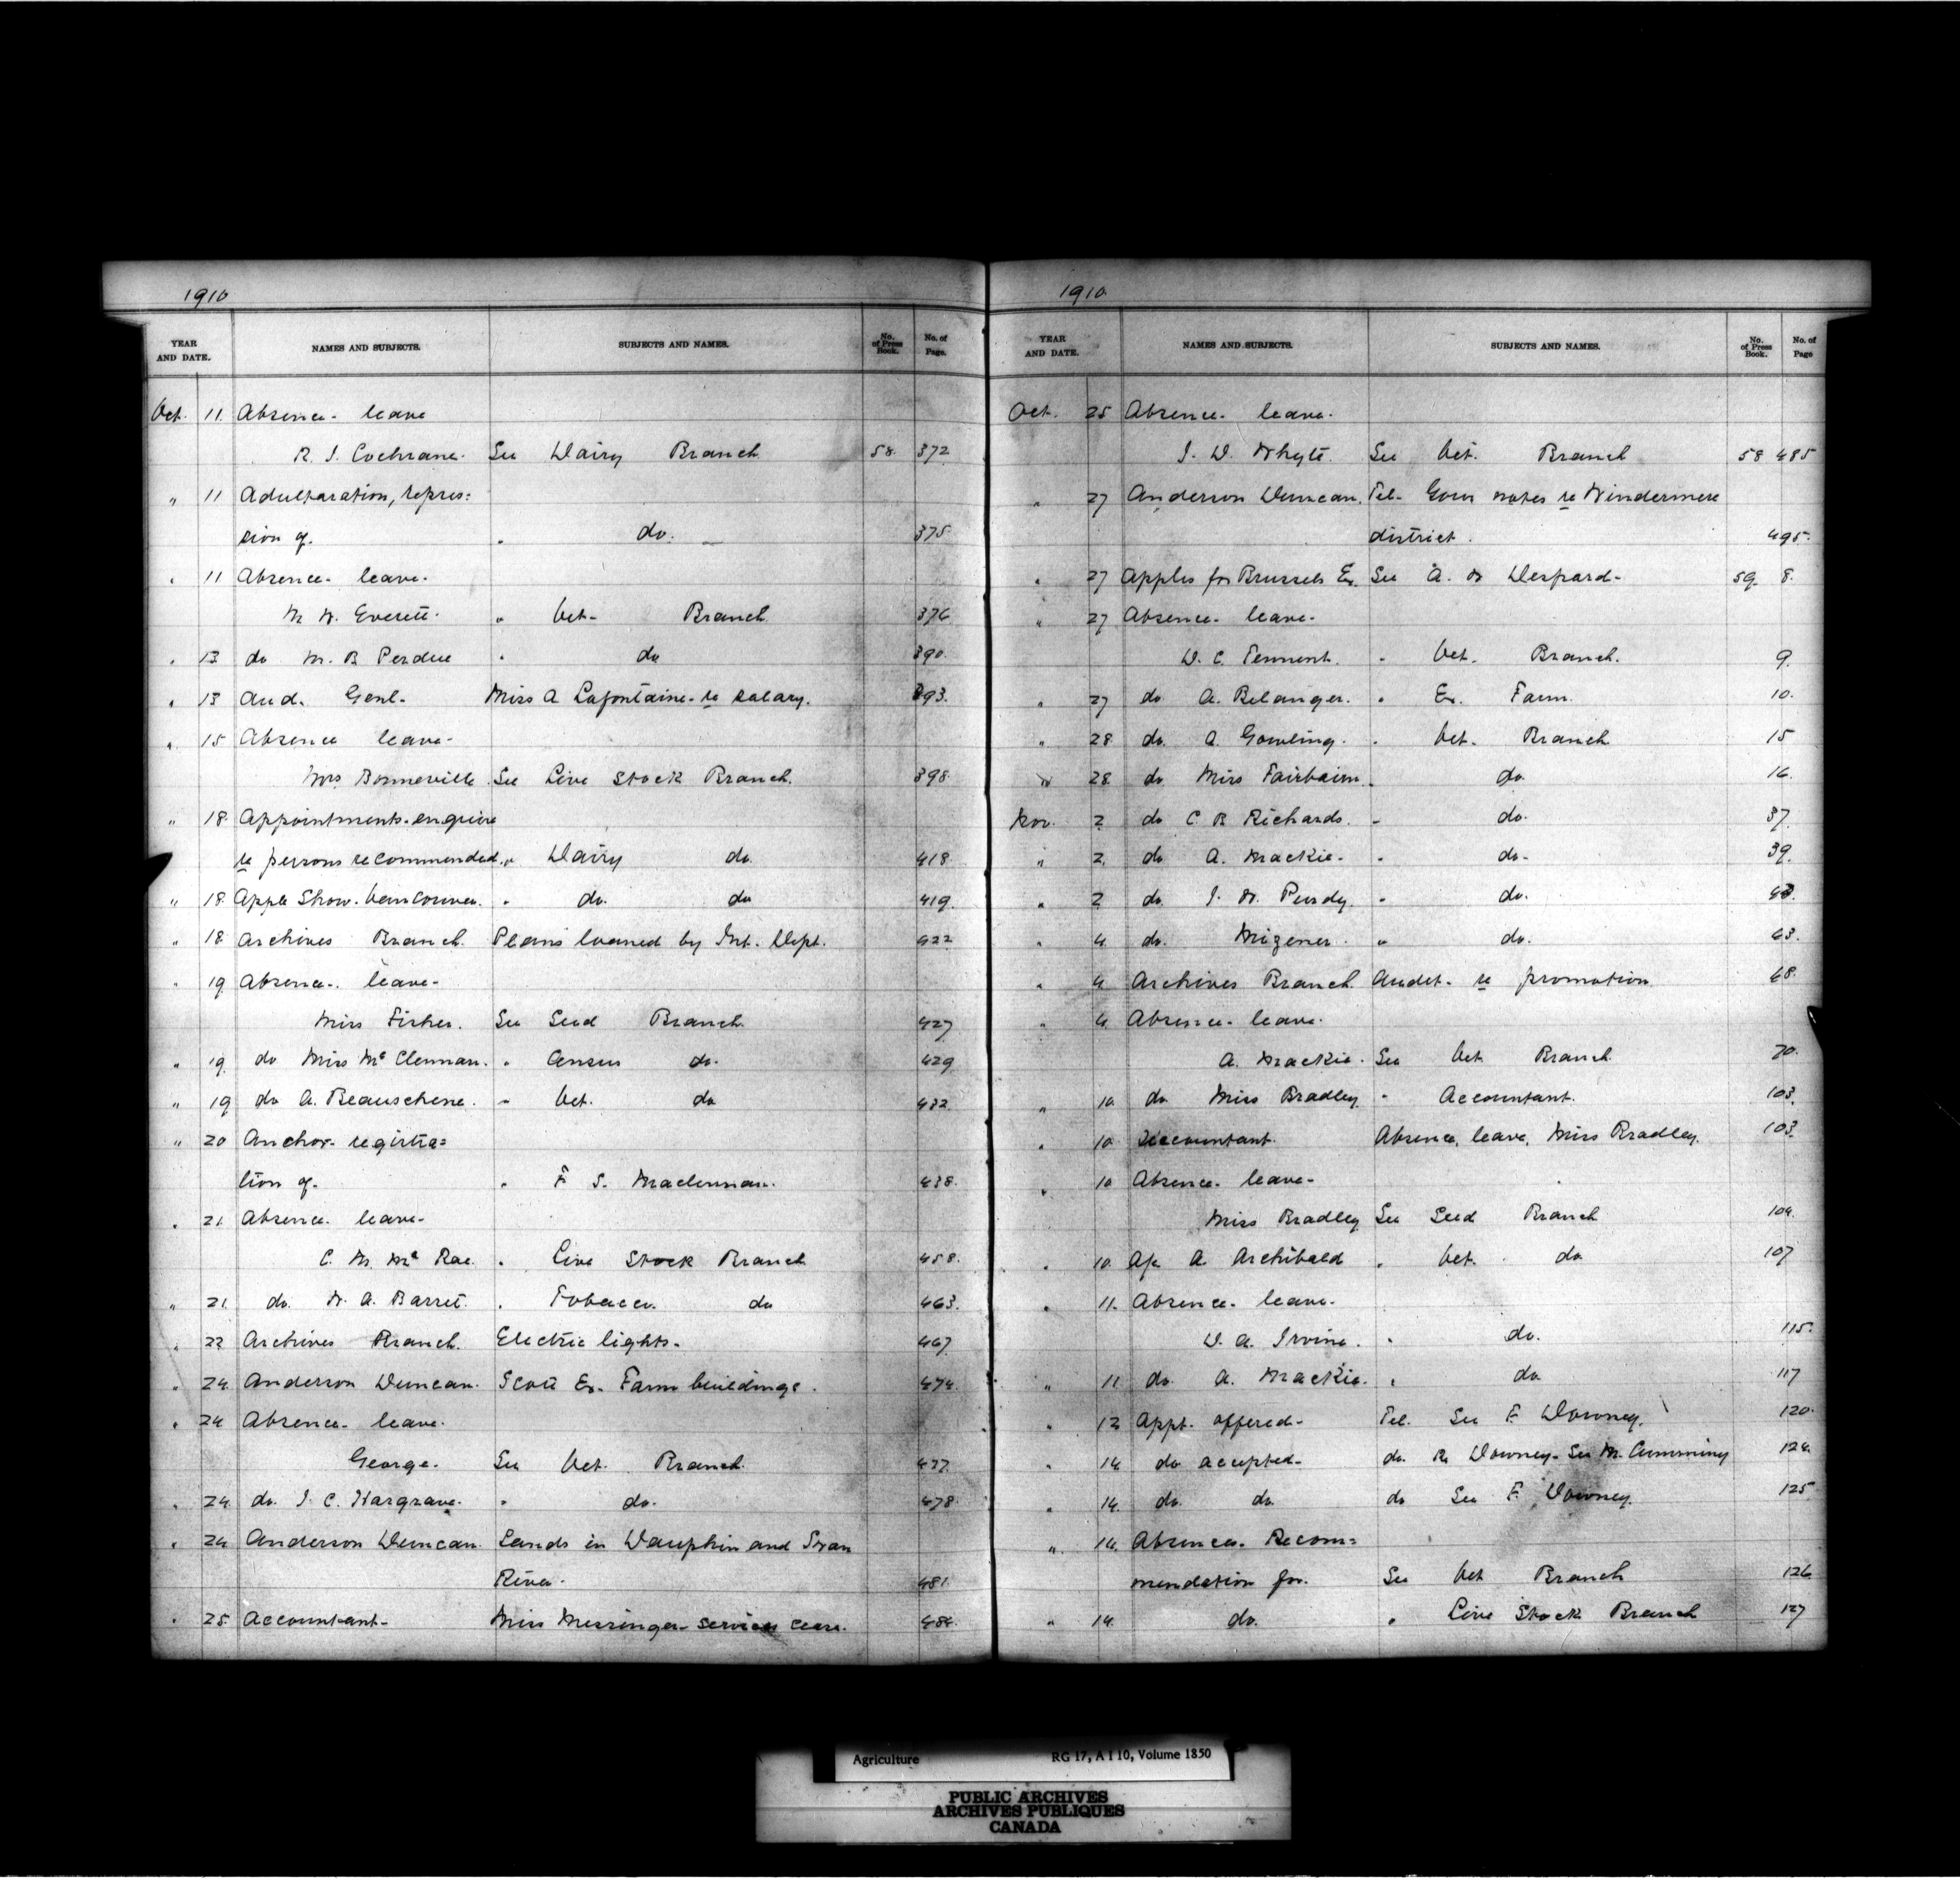 1910
YEAR AND DATE. NAMES AND SUBJECTS. SUBJECTS AND NAMES. No. of Press Book. No. of Page.
Oct. 11. Absence- leave
R. J. Cochrane. See Dairy Branch 58. 372
" 11 Adulteration, repres=
sion of. " do. 375
" 11 Absence- leave.
W. Everett. " Vet- Branch 376
" 13 do M. B Perdue " do 390.
" 13 Aud. Genl- Miss A Lafontaine- re salary. 393.
" 15 Absence leave-
Mrs Bonneville. See Live Stock Branch. 398.
" 18. Appointments-enquire
re persons recommended. " Dairy do. 418.
" 18. Apple Show. Vancouver. " do. do 419.
" 18. Archives Branch. Plans loaned by Int. Dept. 422
" 19 Absence-. leave-
Miss Fisher. See Seed Branch. 427
" 19. do Miss McClennan. " Census do. 429
" 19 do A. Beauschene. " Vet. do 432.
" 20 Anchor- registra=
tion of. " F S. Maclennan. 438.
" 21. Absence. leave-
C. M. Mc Rae. " Live Stock Branch 458.
" 21. do. W. A. Barret. " Tobacco. do 463.
" 22 Archives Branch. Electric lights- 467
" 24. Anderson Duncan. Scott Ex. Farm buildings. 474.
" 24 Absence- leave.
George- See Vet. Branch. 477
" 24. do. J. C. Hargrave. " do. 478.
" 24 Anderson Duncan. Lands in Dauphin and Swan
River. 481.
" 25. Accountant- Miss Messinger- services cease. 484.
1910.
YEAR AND DATE. NAMES AND SUBJECTS. SUBJECTS AND NAMES. No. of Press Book. No. of Page
Oct. 25 Absence- leave.
J. D. Whyte. See Vet. Branch 58 485
" 27 Anderson Duncan. Tel- Govr notes re Windermere
district. 495.
" 27 Apples for Brussels Ex. See A. W Despard- 59. 8.
" 27 Absence- leave-
D. C. Tennent. " Vet. Branch. 9.
" 27 do A. Belanger. " Ex. Farm. 10.
" 28 do. A. Gowling. " Vet. Branch 15
" 28. do. Miss Fairbairn. " do. 16.
Nov. 2 do C B Richards. " do. 37.
" 2. do. A. Mackie- " do- 39.
" 2 do. J. W. Purdy. " do. 43.
" 4. do. Mizener. " do. 63.
" 4 Archives Branch. Audet- re promotion. 68.
" 4. Absence- leave.
A. Mackie. See Vet. Branch 70.
" 10. do Miss Bradley. " Accountant. 103.
" 10. Accountant. Absence, leave, Miss Bradley. 103.
" 10 Absence- leave-
Miss Bradley See Seed Branch 104.
" 10. A. Archibald " Vet. do 107
" 11. Absence- leave-
D. A. Irvine. " do. 115.
" 11. do. A. Mackie. " do 117
" 12 Appt. offered- Tel. See F. Downey. 120.
" 14. do accepted- do. R. Downey- See M. Cumming 124.
" 14. do. do. do See F. Downey. 125
" 14. Absences- Recom=
mendation for. See Vet Branch 126
" 14. do. " Live Stock Branch 127
Agriculture RG 17, A I 10, Volume 1850
PUBLIC ARCHIVES
ARCHIVES PUBLIQUES
CANADA